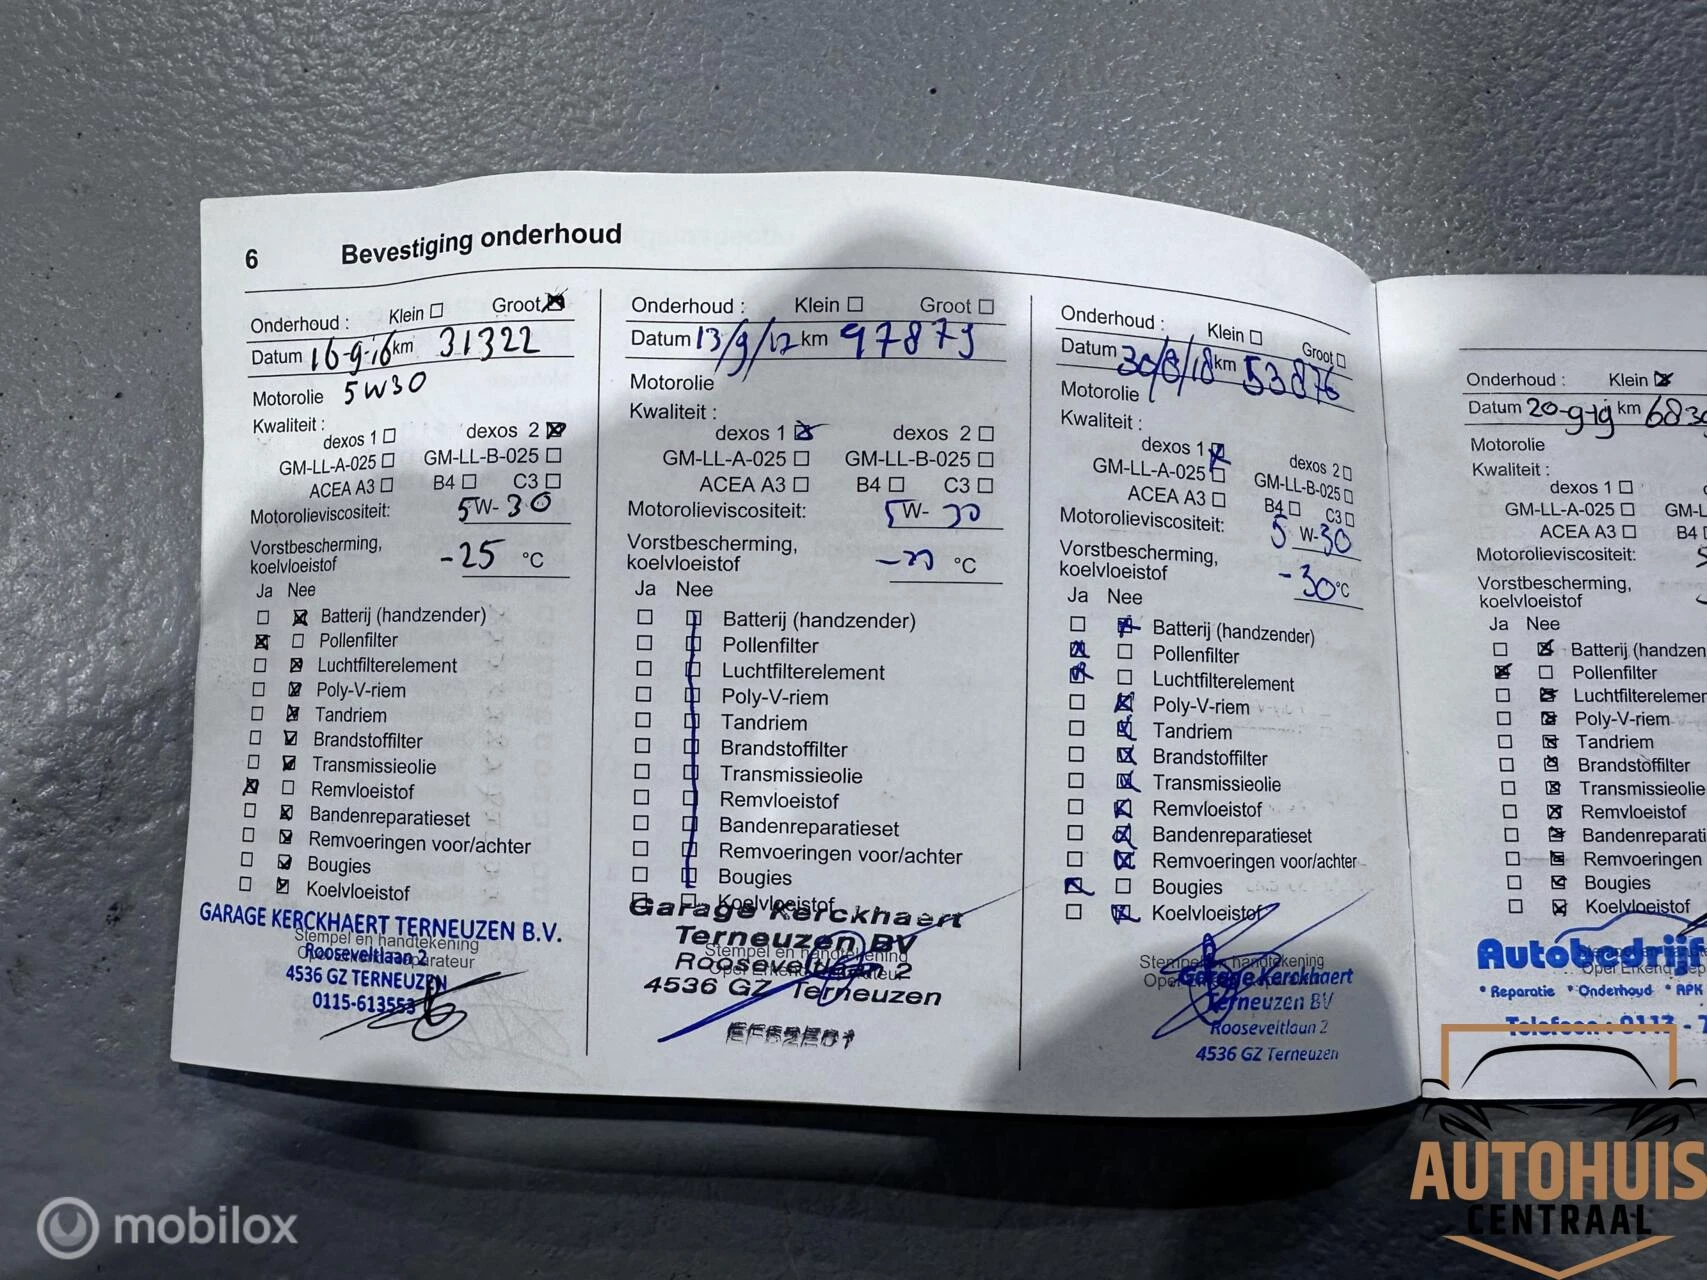 6 Bevestiging onderhoud
Onderhoud : Klein Groot
Datum 16-9-16 km 31322
Motorolie 5W30
Kwaliteit :
dexos 1 dexos 2
GM-LL-A-025 GM-LL-B-025
ACEA A3 B4 C3
Motorolieviscositeit: 5 W- 30
Vorstbescherming,
koelvloeistof -25 °C
Ja Nee
Batterij (handzender)
Pollenfilter
Luchtfilterelement
Poly-V-riem
Tandriem
Brandstoffilter
Transmissieolie
Remvloeistof
Bandenreparatieset
Remvoeringen voor/achter
Bougies
Koelvloeistof
GARAGE KERCKHAERT TERNEUZEN B.V.
Stempel en handtekening
Rooseveltlaan 2
4536 GZ TERNEUZEN
0115-613553
Onderhoud : Klein Groot
Datum 13/9/17 km 97879
Motorolie
Kwaliteit :
dexos 1 dexos 2
GM-LL-A-025 GM-LL-B-025
ACEA A3 B4 C3
Motorolieviscositeit: 5 W- 30
Vorstbescherming,
koelvloeistof °C
Ja Nee
Batterij (handzender)
Pollenfilter
Luchtfilterelement
Poly-V-riem
Tandriem
Brandstoffilter
Transmissieolie
Remvloeistof
Bandenreparatieset
Remvoeringen voor/achter
Bougies
Koelvloeistof
Garage Kerckhaert
Terneuzen BV
Stempel en handtekening
Rooseveltlaan 2
4536 GZ Terneuzen
Onderhoud : Klein Groot
Datum 30/8/18 km 53876
Motorolie
Kwaliteit :
dexos 1 dexos 2
GM-LL-A-025 GM-LL-B-025
ACEA A3 B4 C3
Motorolieviscositeit: 5 W-30
Vorstbescherming,
koelvloeistof -30 °C
Ja Nee
Batterij (handzender)
Pollenfilter
Luchtfilterelement
Poly-V-riem
Tandriem
Brandstoffilter
Transmissieolie
Remvloeistof
Bandenreparatieset
Remvoeringen voor/achter
Bougies
Koelvloeistof
Stempel en handtekening
Garage Kerckhaert
Terneuzen BV
Rooseveltlaan 2
4536 GZ Terneuzen
Onderhoud : Klein
Datum 20-9-19 km 6830
Motorolie
Kwaliteit :
dexos 1
GM-LL-A-025 GM-L
ACEA A3 B4
Motorolieviscositeit:
Vorstbescherming,
koelvloeistof
Ja Nee
Batterij (handzen
Pollenfilter
Luchtfilterelemen
Poly-V-riem
Tandriem
Brandstoffilter
Transmissieolie
Remvloeistof
Bandenreparati
Remvoeringen
Bougies
Koelvloeistof
Autobedrijf
Opel Erkend
* Reparatie * Onderhoud * APK
Telefoon : 0113 - 7
AUTOHUIS
CENTRAAL
mobilox